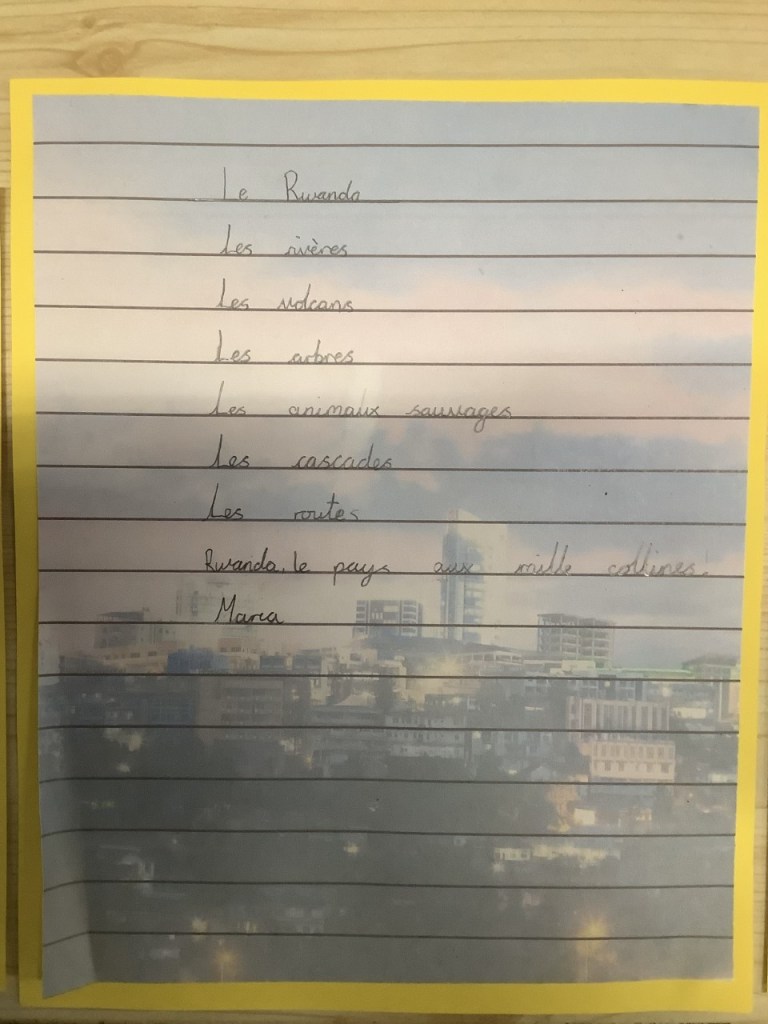 Le Rwanda
Les rivères
Les volcans
Les arbres
Les animaux sauvages
Les cascades
Les routes
Rwanda, le pays aux mille collines.
Maria